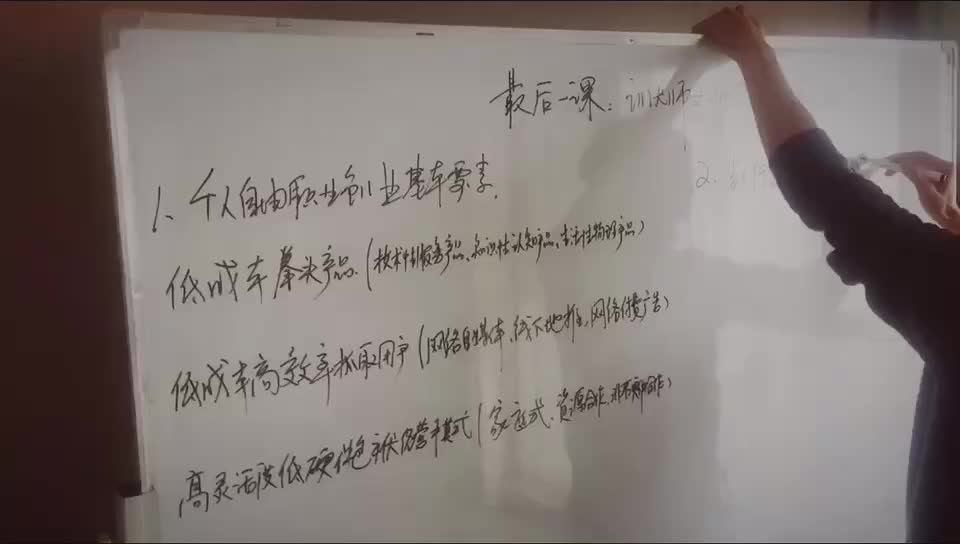 最后一课：训犬师
1、个人自由职业创业基本要素.
2、
低成本拳头产品（技术性服务产品、知识性认知产品、生活性物评产品）
低成本高效率抓取用户（网络自媒体,线下地推,网络付费广告）
高灵活度低硬件 营模式（家庭式、资源合作、非 合作）